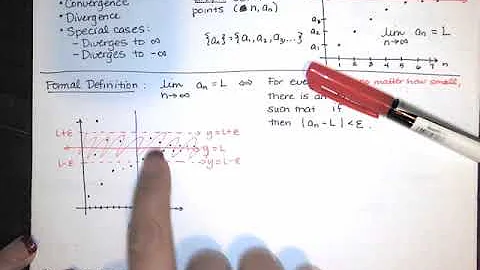 • Convergence
• Divergence
• Special cases:
– Diverges to ∞
– Diverges to -∞
points (n, aₙ)
{aₙ} = {a₁, a₂, a₃, ...}
a₃
a₂
a₁
1 2 3 4 5 6 7 n
lim aₙ = L
n→∞
Formal Definition: lim aₙ = L ⇔
n→∞
For every matter how small,
there is an
such that if
then |aₙ - L| < ε.
L+ε
L
L-ε
y = L+ε
y = L
y = L-ε